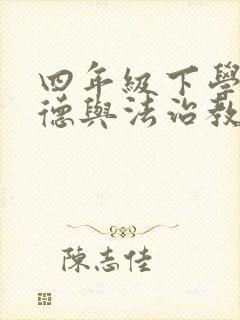 四年級下學
德與法治教
陳志佳